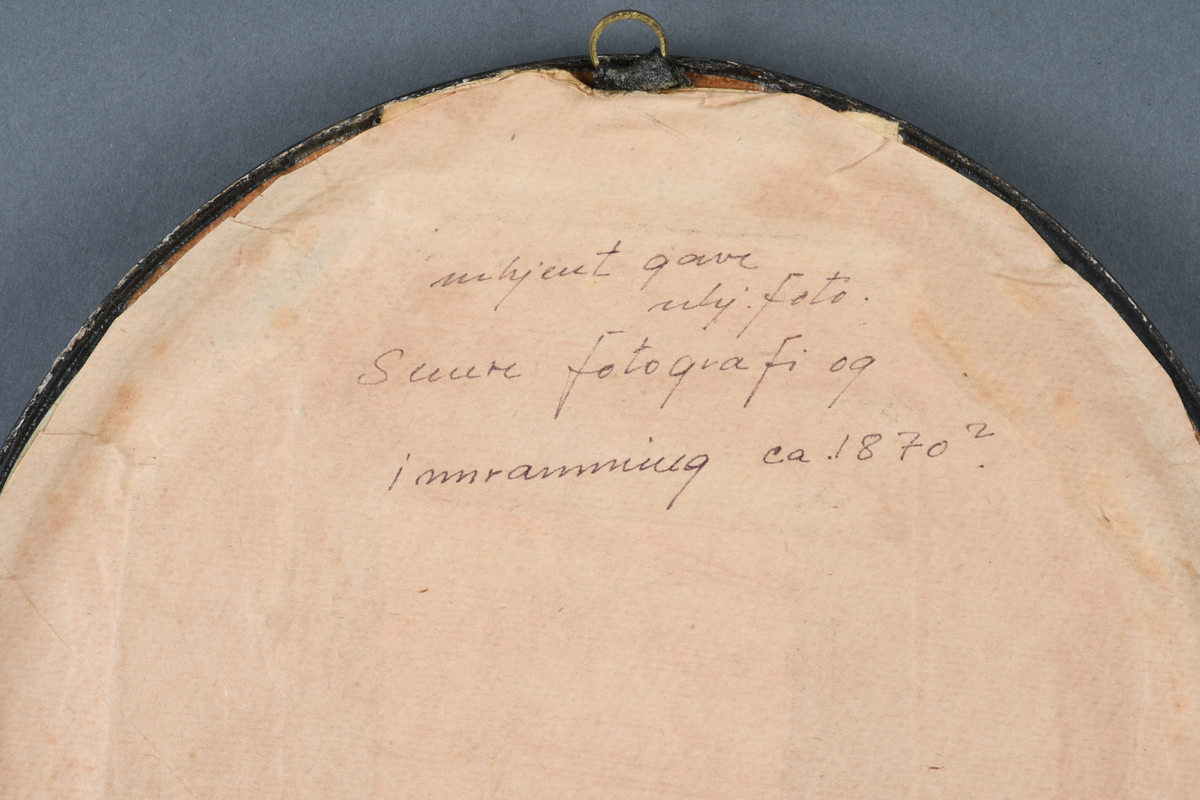 ukjent gave
ukj. foto.
Senere fotografi og
innramming ca. 1870?